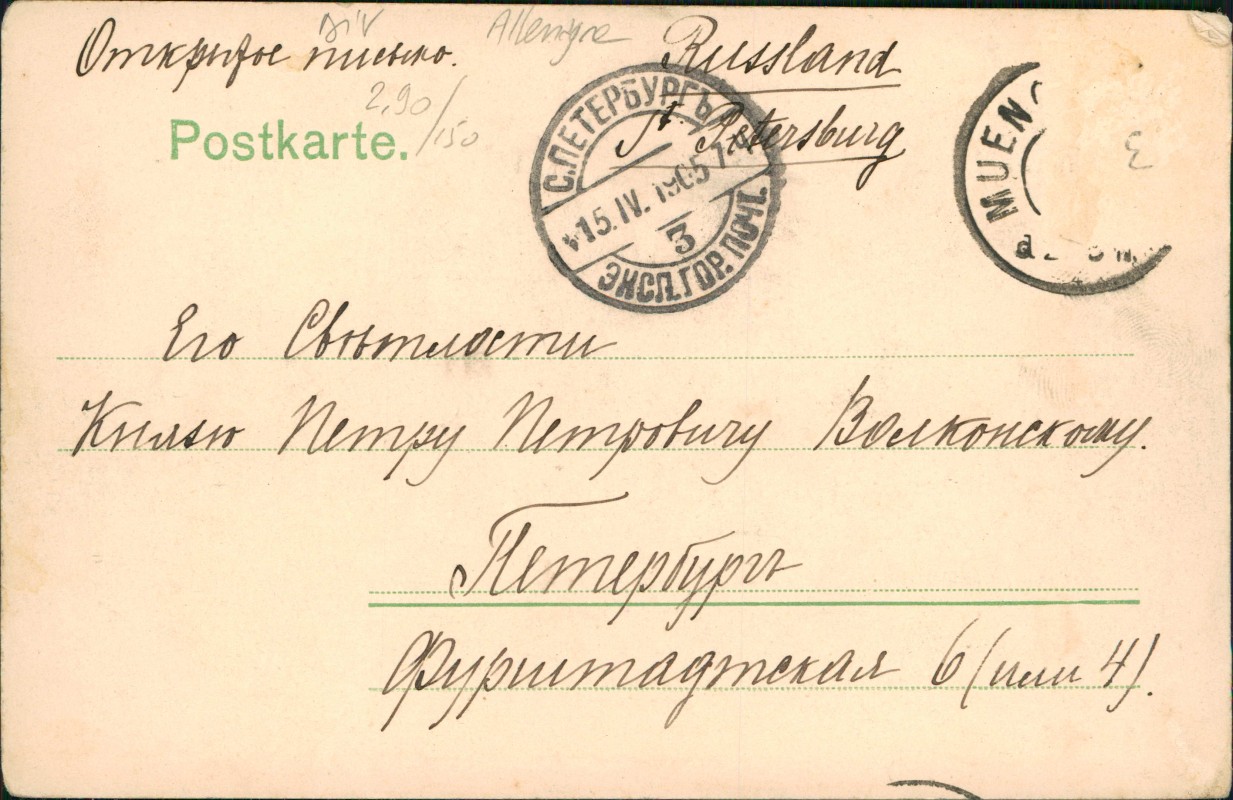 Открытое письмо.
Russland
St. Petersburg
Allemgne
2,90/150
Postkarte.
С.ПЕТЕРБУРГЪ
15.IV.1905
3
ЭКСП.ГОР.ПОЧТ.
MUEN
Его Свѣтлости
Князю Петру Петровичу Волконскому.
Петербургъ
Фурштадтская 6 (или 4).